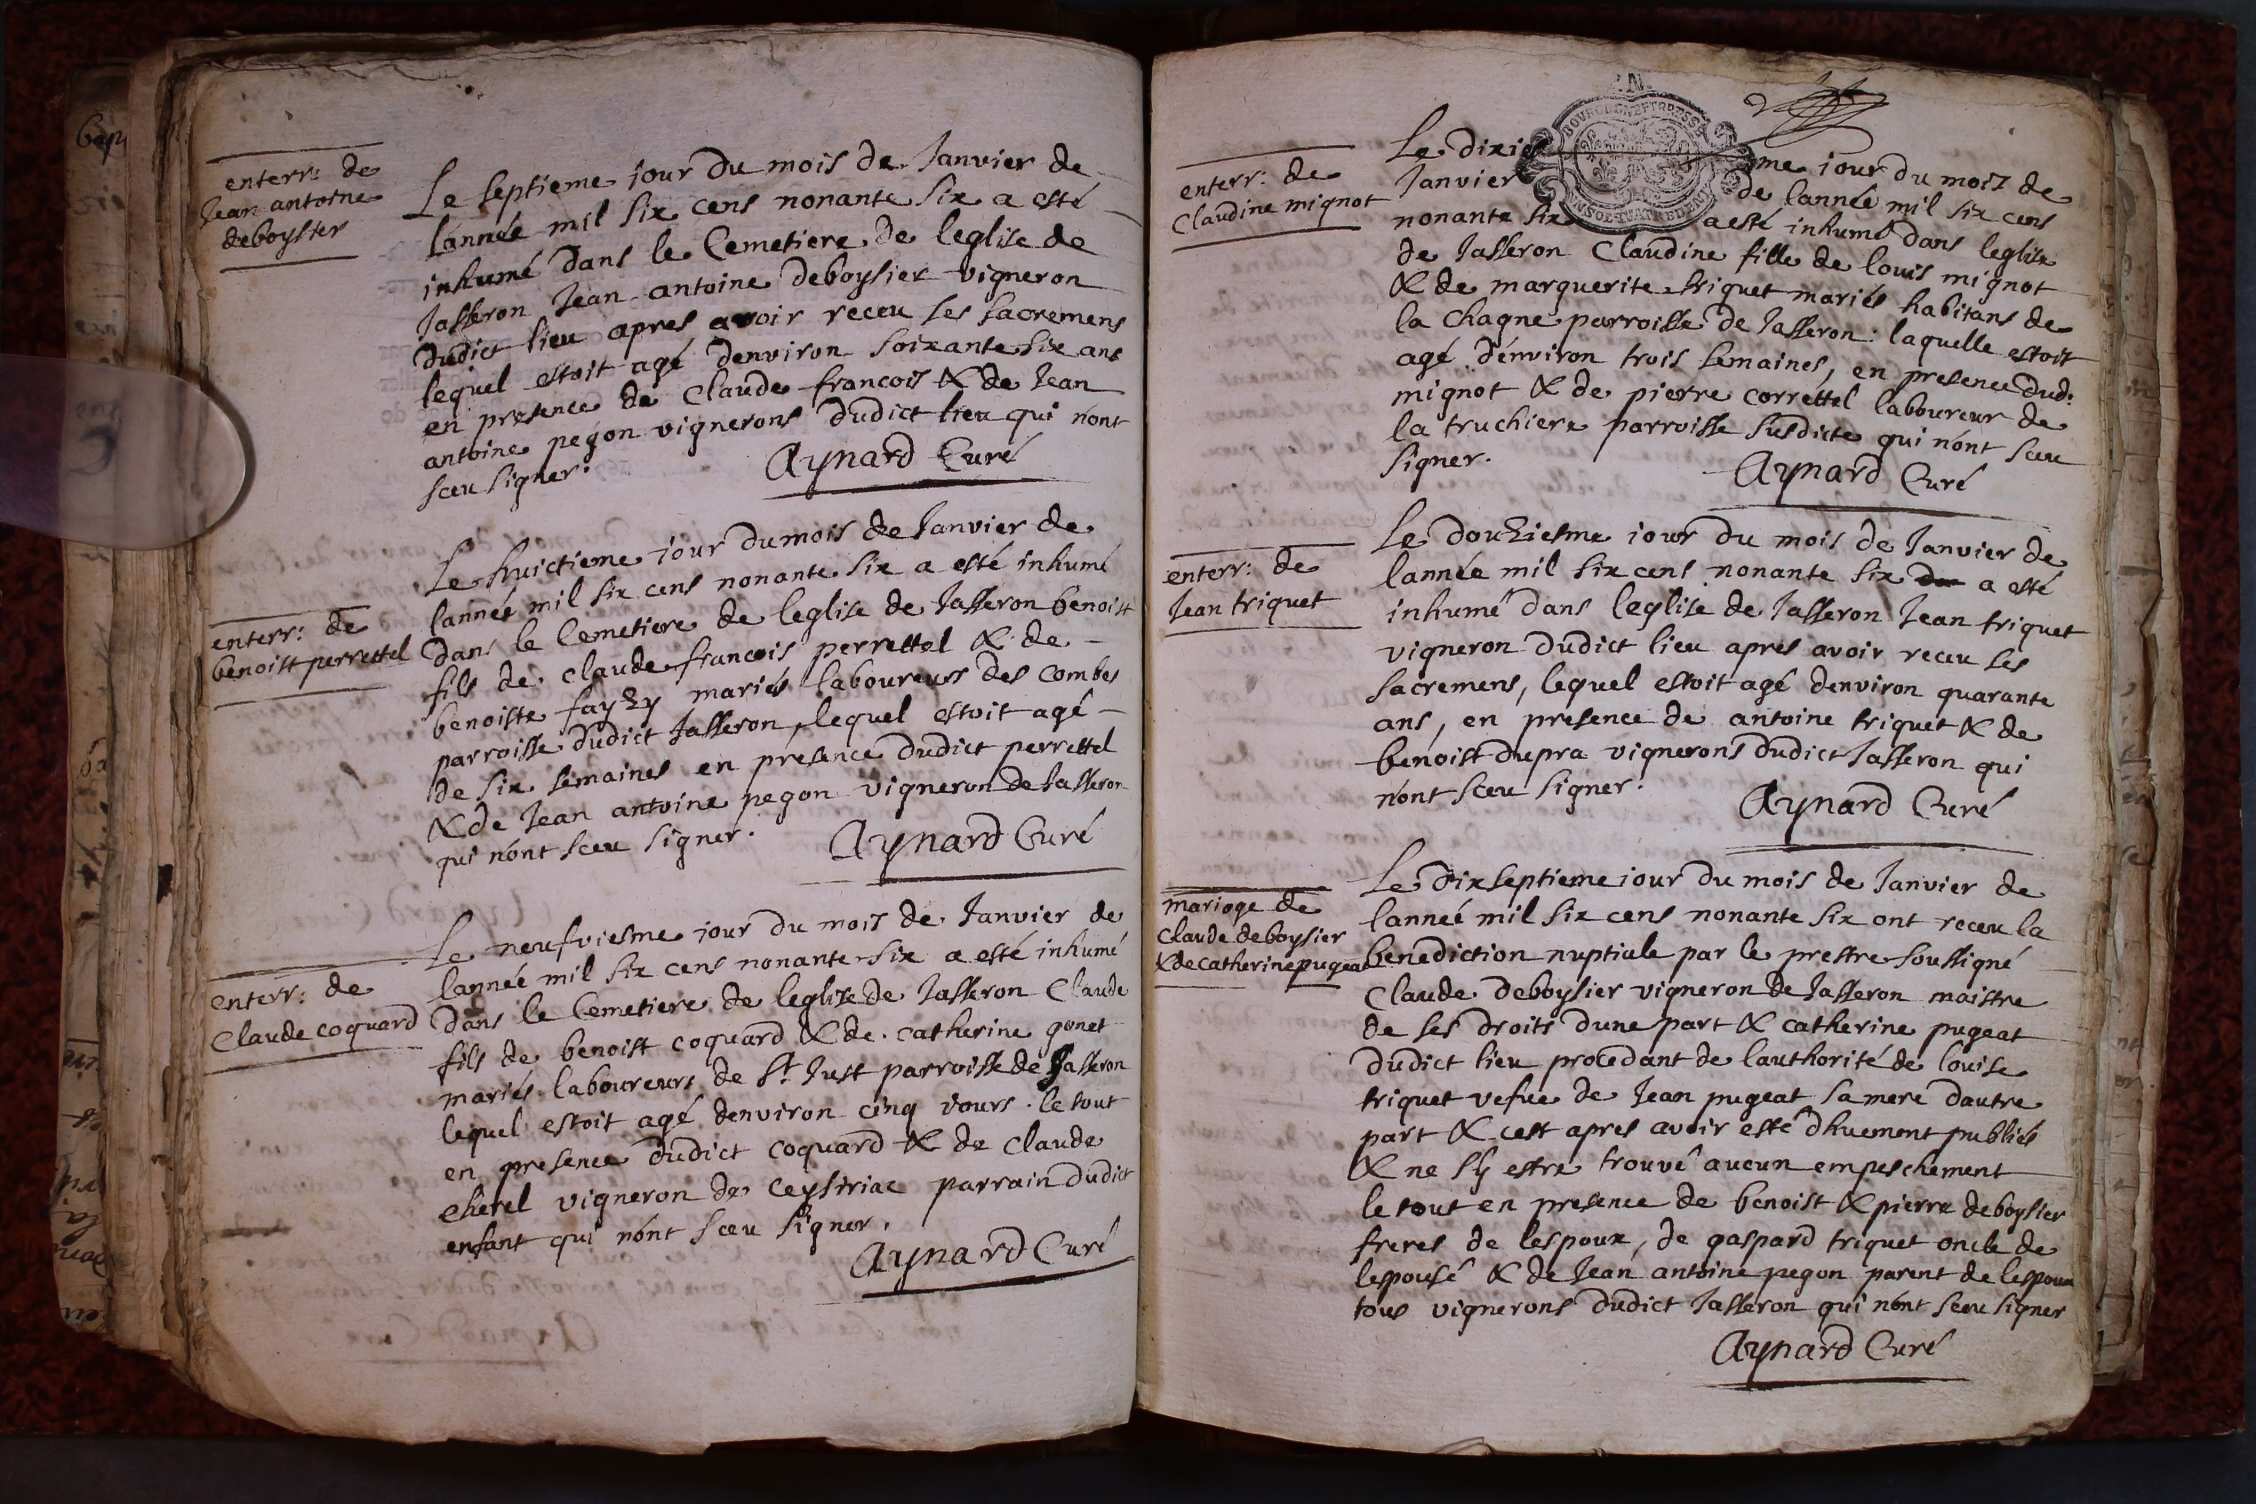 enterr: de
Jean antoine
deboysier
Le septieme jour du mois de Janvier de
lannée mil six cens nonante six a esté
inhumé dans le Cemetiere de leglise de
Jasseron Jean antoine deboysier vigneron
dudict lieu apres avoir receu ses sacremens
lequel estoit agé denviron soixante six ans
en presence de Claude francois & de Jean
antoine pegon vignerons dudict lieu qui nont
sceu signer.
Aynard Curé
enterr: de
benoist perrettel
Le huictieme jour du mois de Janvier de
lannée mil six cens nonante six a esté inhumé
dans le Cemetiere de leglise de Jasseron benoist
fils de claude francois perrettel & de
benoiste fayzy mariés laboureurs des combes
parroisse dudict Jasseron, lequel estoit agé
de six semaines en presence dudict perrettel
& de Jean antoine pegon vigneron de Jasseron
qui nont sceu signer.
Aynard Curé
enterr: de
Claude coquard
Le neufviesme jour du mois de Janvier de
lannée mil six cens nonante six a esté inhumé
dans le Cemetiere de leglise de Jasseron Claude
fils de benoist coquard & de catherine gonet
mariés laboureurs de St Just parroisse de Jasseron
lequel estoit agé denviron cinq jours. le tout
en presence dudict coquard & de claude
cherel vigneron de ceysiriac parrain dudict
enfant qui nont sceu signer.
Aynard Curé
enterr: de
Claudine mignot
Le dixieme jour du mois de
Janvier de lannée mil six cens
nonante six a esté inhumé dans leglise
de Jasseron Claudine fille de louis mignot
& de marguerite triquet mariés habitans de
la Chagne parroisse de Jasseron. laquelle estoit
agé denviron trois semaines, en presence dud:
mignot & de pierre correttel laboureur de
la truchiere parroisse susdicte qui nont sceu
signer.
Aynard Curé
enterr: de
Jean triquet
Le douziesme jour du mois de Janvier de
lannée mil six cens nonante six a esté
inhumé dans leglise de Jasseron Jean triquet
vigneron dudict lieu apres avoir receu ses
sacremens, lequel estoit agé denviron quarante
ans, en presence de antoine triquet & de
benoist dupra vignerons dudict Jasseron qui
nont sceu signer.
Aynard Curé
mariage de
claude deboysier
& de catherine pugeat
Le dixseptieme jour du mois de Janvier de
lanneé mil six cens nonante six ont receu la
benediction nuptiale par le prestre soussigné
Claude deboysier vigneron de Jasseron maistre
de ses droits dune part & catherine pugeat
dudict lieu procedant de lauthorité de louise
triquet vefue de Jean pugeat sa mere dautre
part & cest apres avoir esté dhuement publiés
& ne sy estre trouvé aucun empeschement
le tout en presence de benoist & pierre deboysier
freres de lespoux, de gaspard triquet oncle de
lespousé & de Jean antoine pegon parent de lespoux
tous vignerons dudict Jasseron qui nont sceu signer
Aynard Curé